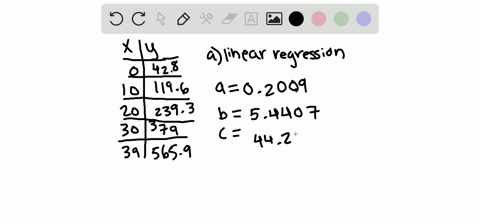 x y
0 42.8
10 119.6
20 239.3
30 379
39 565.9
a) linear regression
a = 0.2009
b = 5.4407
c = 44.2